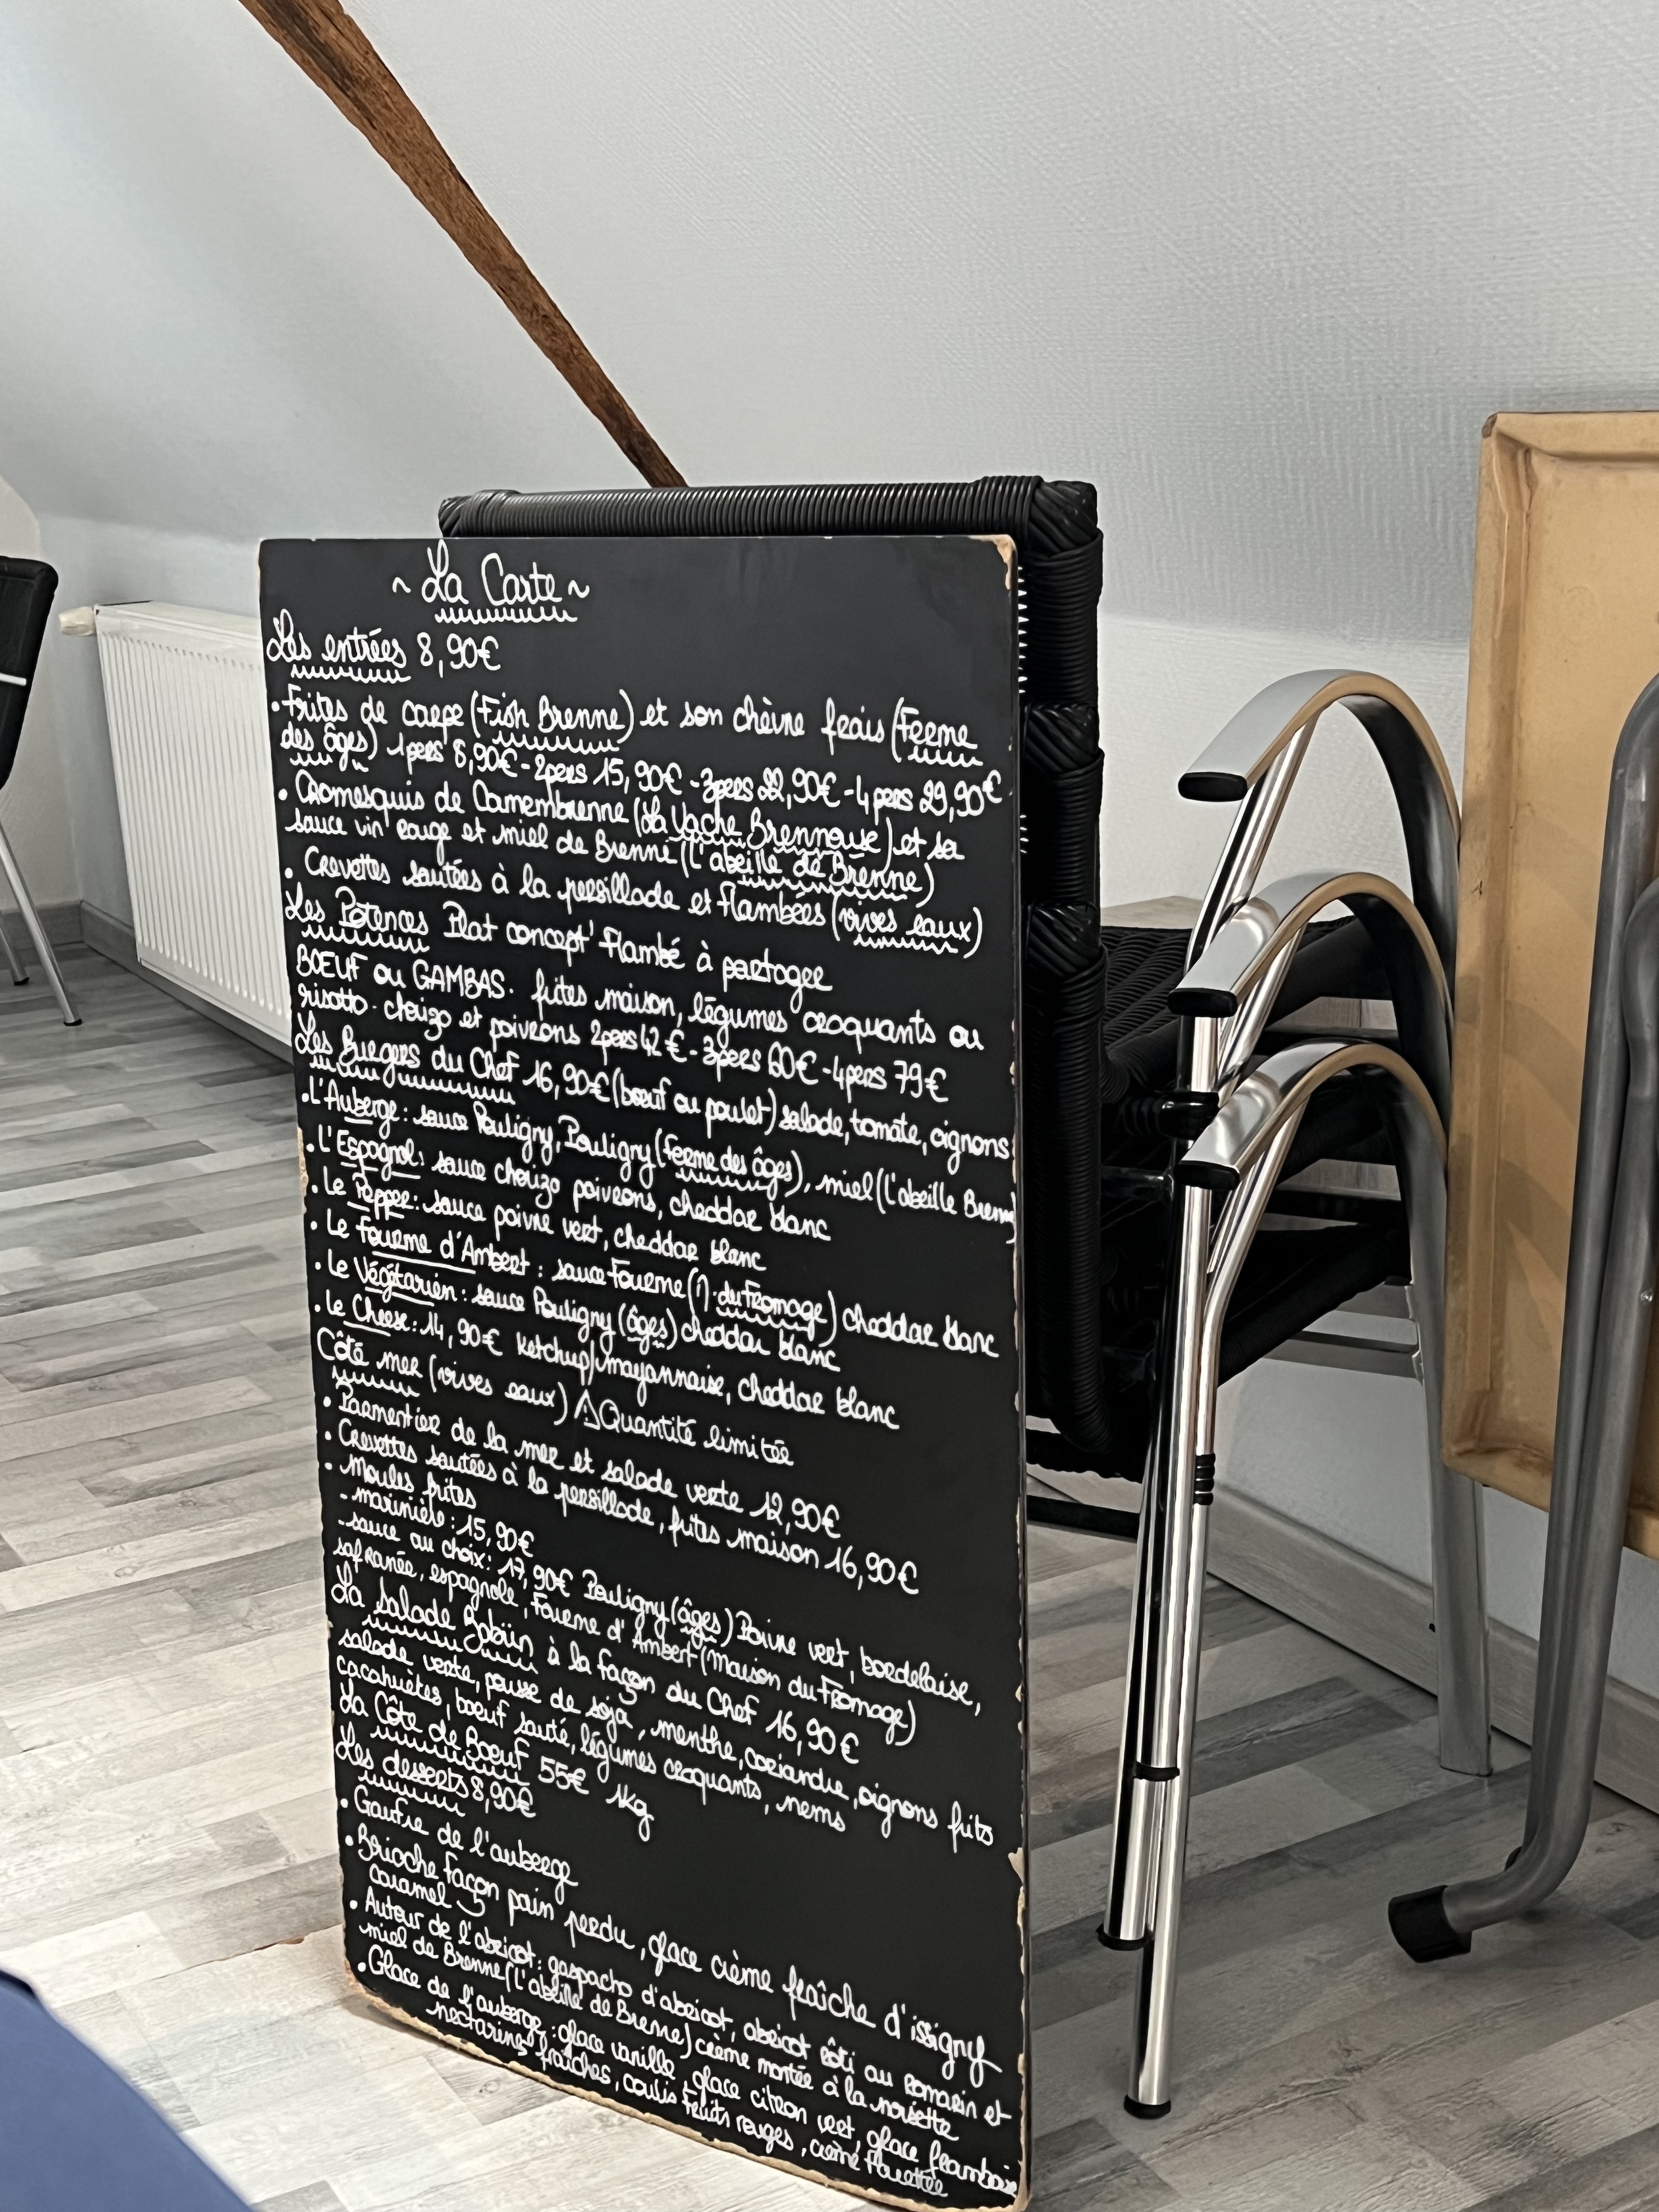 ~ La Carte ~
Les entrées 8,90€
• Frites de carpe (Fish Brenne) et son chèvre frais (Ferme
des âges) 1pers 8,90€ - 2pers 15,90€ - 3pers 22,90€ - 4pers 29,90€
• Cromesquis de Camembrenne (La Vache Brennouse) et sa
sauce vin rouge et miel de Brenne (L'abeille de Brenne)
• Crevettes sautées à la persillade et flambées (vives eaux)
Les Potences Plat concept' Flambé à partager
BOEUF ou GAMBAS. frites maison, légumes croquants ou
risotto - chorizo et poivrons 2pers 42€ - 3pers 60€ - 4pers 79€
Les Burgers du Chef 16,90€ (boeuf ou poulet) salade, tomate, oignons
• L'Auberge : sauce Pouligny, Pouligny (Ferme des âges), miel (L'abeille Brenne)
• L'Espagnol : sauce chorizo poivrons, cheddar blanc
• Le Pepper : sauce poivre vert, cheddar blanc
• Le Fourme d'Ambert : sauce Fourme (π du Fromage) cheddar blanc
• Le Végétarien : sauce Pouligny (âges) cheddar blanc
• Le Cheese : 14,90€ ketchup/mayonnaise, cheddar blanc
Côté mer (vives eaux) ⚠ Quantité limitée
• Parmentier de la mer et salade verte 12,90€
• Crevettes sautées à la persillade, frites maison 16,90€
• Moules frites
- marinière : 15,90€
- sauce au choix : 17,90€ Pouligny (âges) Poivre vert, bordelaise,
safranée, espagnole, Fourme d'Ambert (Maison du Fromage)
La Salade Bobün à la façon du Chef 16,90€
salade verte, pousse de soja, menthe, coriandre, oignons frits
cacahuètes, boeuf sauté, légumes croquants, nems
La Côte de Boeuf 55€ 1kg
Les desserts 8,90€
• Gaufre de l'auberge
• Brioche façon pain perdu, glace crème fraîche d'issigny
caramel
• Autour de l'abricot : gaspacho d'abricot, abricot rôti au romarin et
miel de Brenne (L'abeille de Brenne) crème montée à la noisette
• Glace de l'auberge : glace vanille, glace citron vert, glace framboise
nectarines fraîches, coulis fruits rouges, crème fleurette